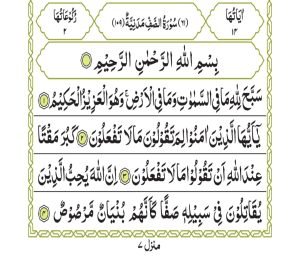 اٰيَاتُهَا ١٤
(٦١) سُوْرَةُ الصَّفِّ مَدَنِيَّةٌ (١٠٩)
رُكُوْعَاتُهَا ٢
بِسْمِ اللّٰهِ الرَّحْمٰنِ الرَّحِيْمِ
سَبَّحَ لِلّٰهِ مَا فِي السَّمٰوٰتِ وَمَا فِي الْاَرْضِ ۚ وَهُوَ الْعَزِيْزُ الْحَكِيْمُ ۝١
يٰۤاَيُّهَا الَّذِيْنَ اٰمَنُوْا لِمَ تَقُوْلُوْنَ مَا لَا تَفْعَلُوْنَ ۝٢ كَبُرَ مَقْتًا
عِنْدَ اللّٰهِ اَنْ تَقُوْلُوْا مَا لَا تَفْعَلُوْنَ ۝٣ اِنَّ اللّٰهَ يُحِبُّ الَّذِيْنَ
يُقَاتِلُوْنَ فِيْ سَبِيْلِهٖ صَفًّا كَاَنَّهُمْ بُنْيَانٌ مَّرْصُوْصٌ ۝٤
منزل ٧